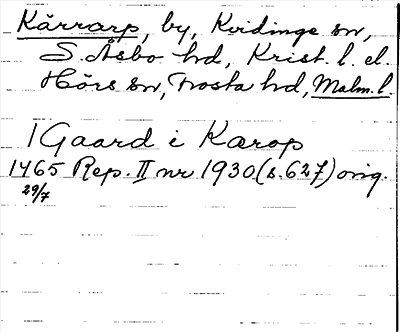 Kärrarp, by, Kvidinge sn,
S. Åsbo hd, Krist. l. el.
Hörs sn, Frosta hd, Malm. l.
1 Gaard i Karop
1465 Rep. II nr 1930 (s. 627) orig.
29/7